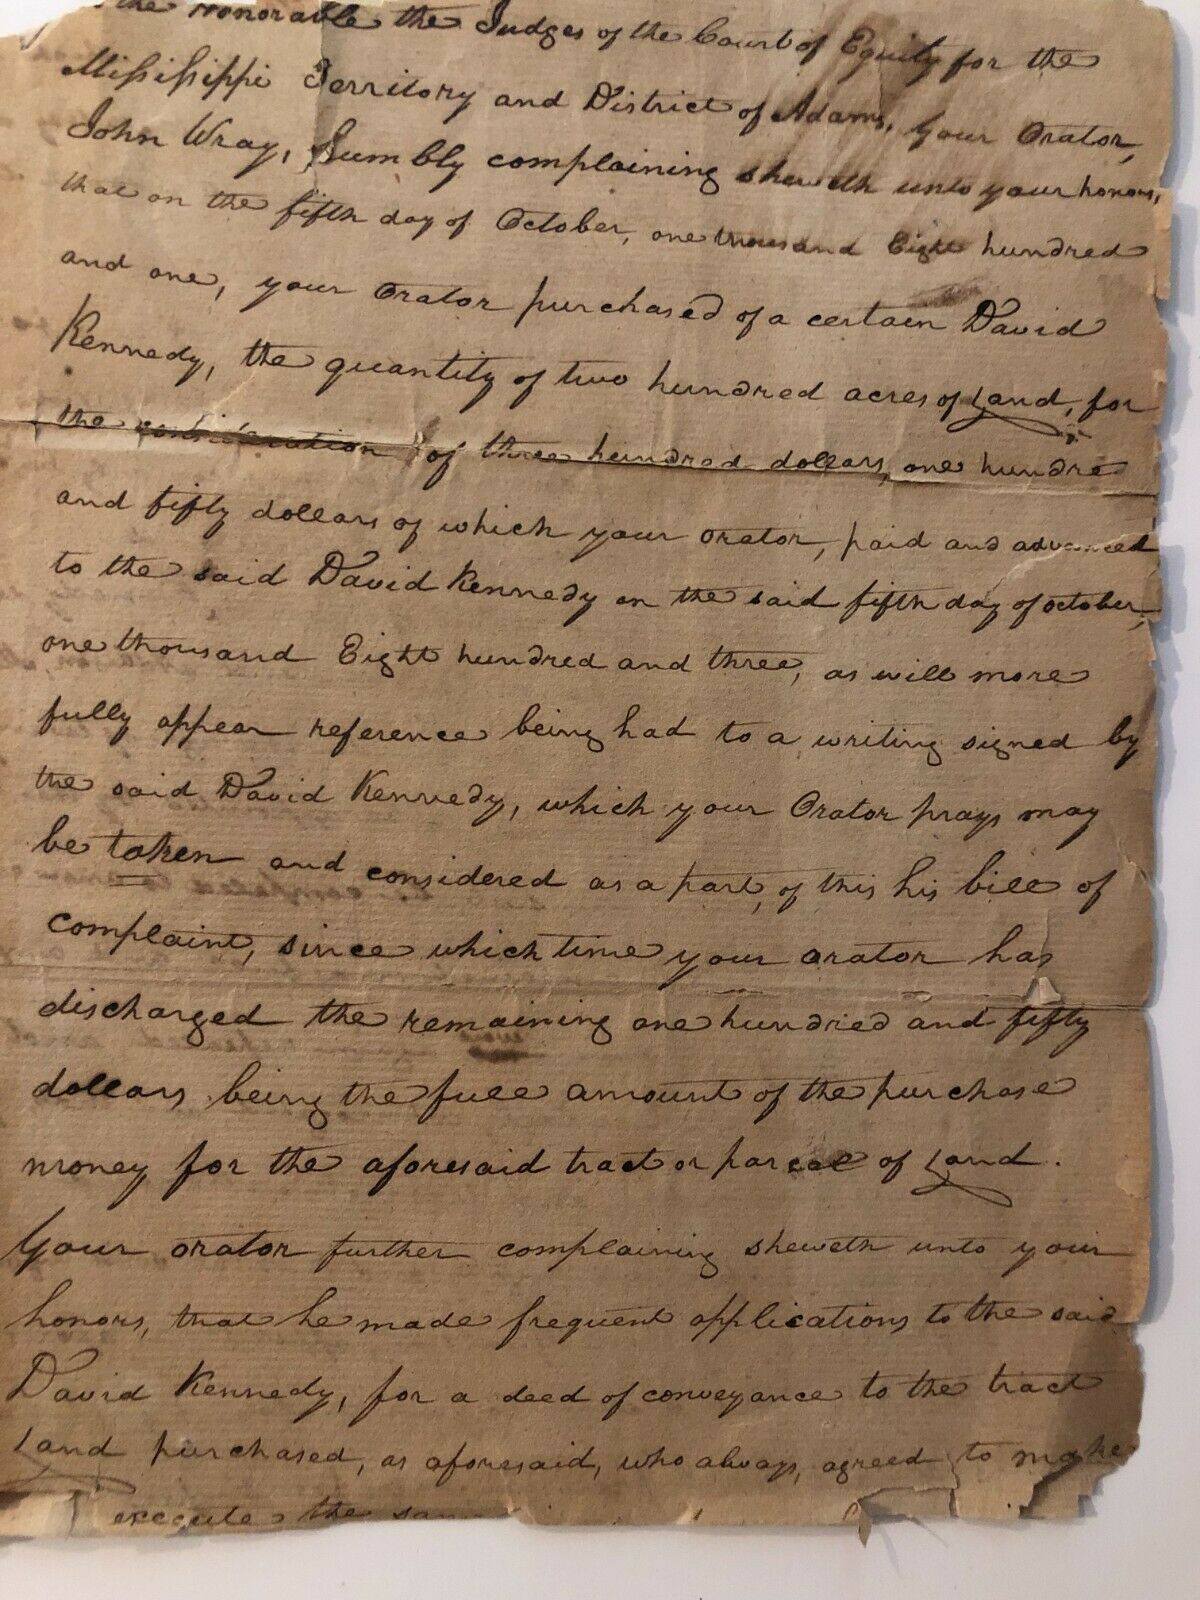 the Honorable the Judges of the Court of Equity for the
Mississippi Territory and District of Adams, Your Orator,
John Wray, Humbly complaining sheweth unto your honors,
that on the fifth day of October, one thousand Eight hundred
and one, your Orator purchased of a certain David
Kennedy, the quantity of two hundred acres of Land, for
the consideration of three hundred dollars, one hundred
and fifty dollars of which your orator, paid and advanced
to the said David Kennedy on the said fifth day of october,
one thousand Eight hundred and three, as will more
fully appear reference being had to a writing signed by
the said David Kennedy, which your Orator prays may
be taken and considered as a part, of this his bill of
complaint, since which time your orator has
discharged the remaining one hundred and fifty
dollars being the full amount of the purchase
money for the aforesaid tract or parcel of Land.
Your orator further complaining sheweth unto your
honors, that he made frequent applications to the said
David Kennedy, for a deed of conveyance to the tract
Land purchased, as aforesaid, who always, agreed to make
execute the